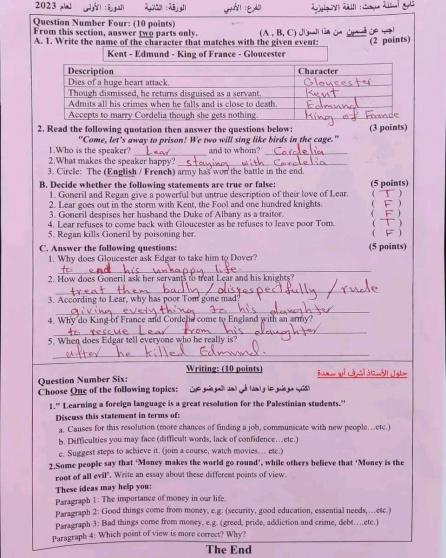 تابع أسئلة مبحث: اللغة الانجليزية الفرع: الأدبي الورقة: الثانية الدورة: الأولى لعام 2023
Question Number Four: (10 points)
From this section, answer two parts only. اجب عن قسمين من هذا السؤال (A , B, C)
A. 1. Write the name of the character that matches with the given event: (2 points)
Kent - Edmund - King of France - Gloucester
Description Character
Dies of a huge heart attack. Gloucester
Though dismissed, he returns disguised as a servant. Kent
Admits all his crimes when he falls and is close to death. Edmund
Accepts to marry Cordelia though she gets nothing. King of France
2. Read the following quotation then answer the questions below: (3 points)
"Come, let's away to prison! We two will sing like birds in the cage."
1.Who is the speaker? Lear and to whom? Cordelia
2.What makes the speaker happy? staying with Cordelia
3. Circle: The (English / French) army has won the battle in the end.
B. Decide whether the following statements are true or false: (5 points)
1. Goneril and Regan give a powerful but untrue description of their love of Lear. ( T )
2. Lear goes out in the storm with Kent, the Fool and one hundred knights. ( F )
3. Goneril despises her husband the Duke of Albany as a traitor. ( F )
4. Lear refuses to come back with Gloucester as he refuses to leave poor Tom. ( T )
5. Regan kills Goneril by poisoning her. ( F )
C. Answer the following questions: (5 points)
1. Why does Gloucester ask Edgar to take him to Dover?
to end his unhappy life
2. How does Goneril ask her servants to treat Lear and his knights?
treat them badly / disrespectfully / rude
3. According to Lear, why has poor Tom gone mad?
giving everything to his daughter
4. Why do King of France and Cordelia come to England with an army?
to rescue Lear from his daughter
5. When does Edgar tell everyone who he really is?
after he killed Edmund.
Writing: (10 points)
حلول الأستاذ أشرف أبو سعدة
Question Number Six:
Choose One of the following topics: اكتب موضوعا واحدا في احد الموضوعين
1." Learning a foreign language is a great resolution for the Palestinian students."
Discuss this statement in terms of:
a. Causes for this resolution (more chances of finding a job, communicate with new people…etc.)
b. Difficulties you may face (difficult words, lack of confidence…etc.)
c. Suggest steps to achieve it. (join a course, watch movies… etc.)
2.Some people say that 'Money makes the world go round', while others believe that 'Money is the
root of all evil'. Write an essay about these different points of view.
These ideas may help you:
Paragraph 1: The importance of money in our life.
Paragraph 2: Good things come from money, e.g. (security, good education, essential needs,…etc.)
Paragraph 3: Bad things come from money, e.g. (greed, pride, addiction and crime, debt….etc.)
Paragraph 4: Which point of view is more correct? Why?
The End